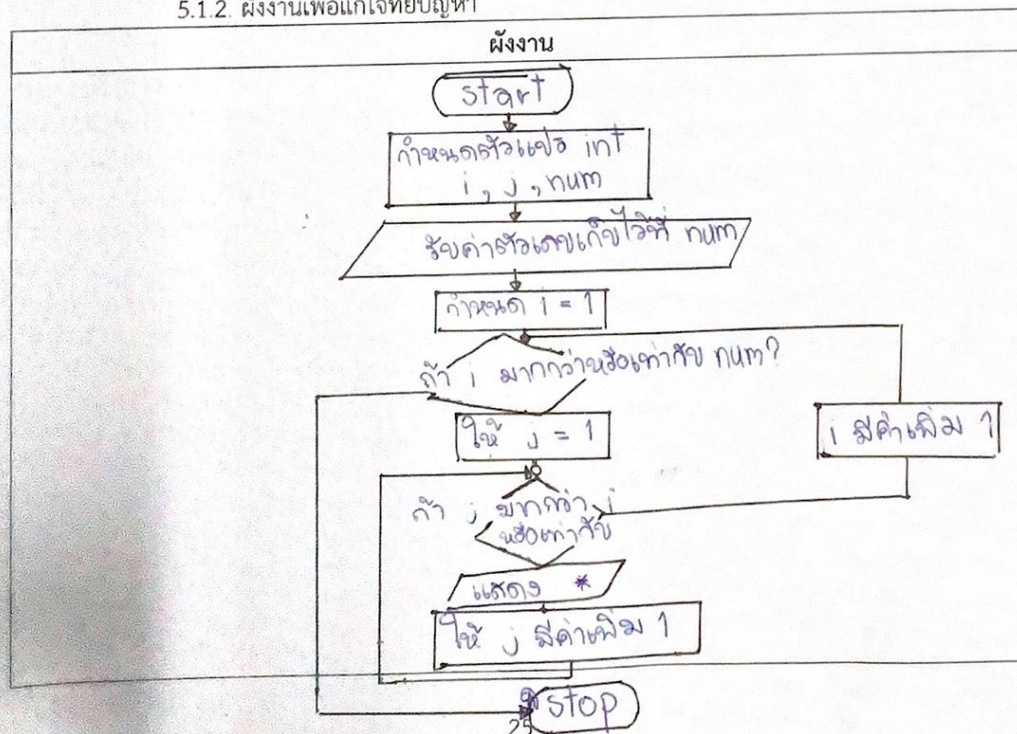 5.1.2. ผังงานเพื่อแก้โจทย์ปัญหา
ผังงาน
start
กำหนดตัวแปร int
i, j, num
รับค่าตัวเลขเก็บไว้ที่ num
กำหนด i = 1
ถ้า i มากกว่าหรือเท่ากับ num?
ให้ j = 1
i มีค่าเพิ่ม 1
ถ้า j มากกว่า i
หรือเท่ากับ
แสดง *
ให้ j มีค่าเพิ่ม 1
stop
25